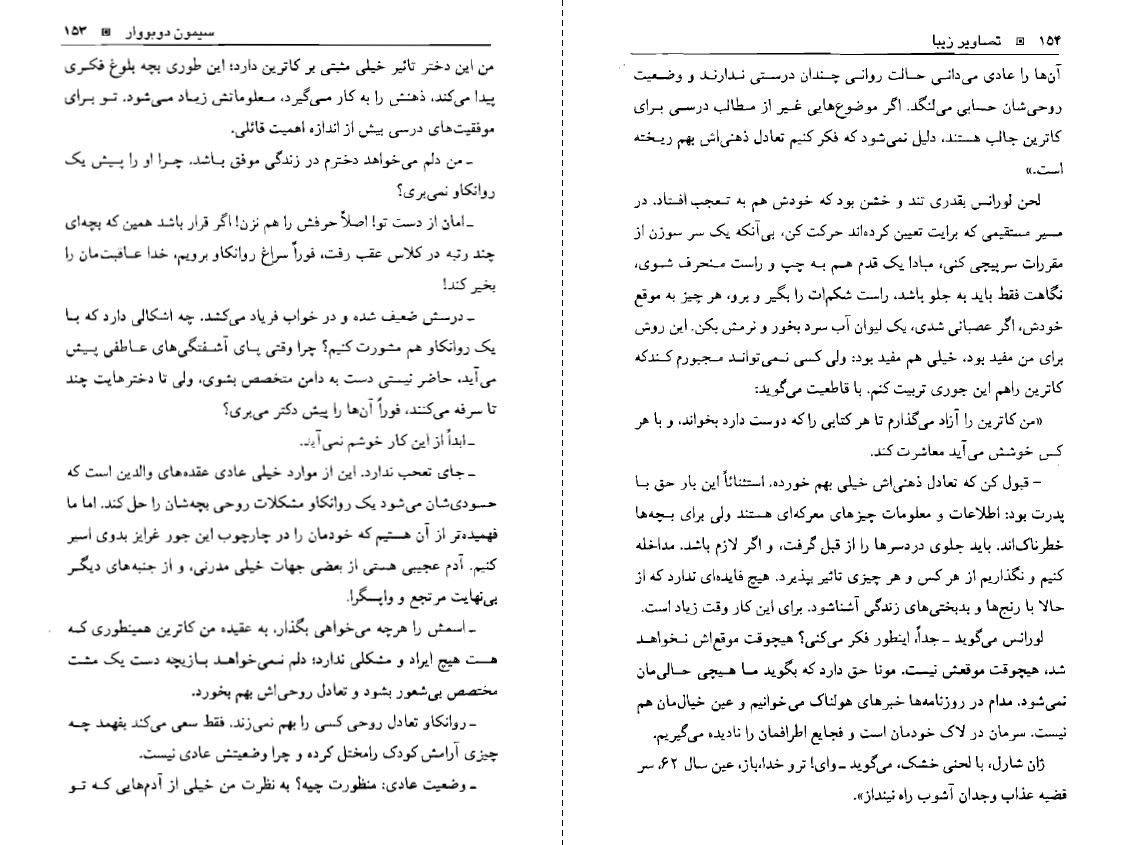 سیمون دوبووار ▣ ۱۵۳
من این دختر تاثیر خیلی مثبتی بر کاترین دارد؛ این طوری بچه بلوغ فکری
پیدا می‌کند، ذهنش را به کار می‌گیرد، معلوماتش زیاد می‌شود. تو برای
موفقیت‌های درسی بیش از اندازه اهمیت قائلی.
ـ من دلم می‌خواهد دخترم در زندگی موفق باشد. چرا او را پیش یک
روانکاو نمی‌بری؟
ـ امان از دست تو! اصلاً حرفش را هم نزن! اگر قرار باشد همین که بچه‌ای
چند رتبه در کلاس عقب رفت، فوراً سراغ روانکاو برویم، خدا عاقبت‌مان را
بخیر کند!
ـ درسش ضعیف شده و در خواب فریاد می‌کشد. چه اشکالی دارد که با
یک روانکاو هم مشورت کنیم؟ چرا وقتی پای آشفتگی‌های عاطفی پیش
می‌آید، حاضر نیستی دست به دامن متخصص بشوی، ولی تا دخترهایت چند
تا سرفه می‌کنند، فوراً آن‌ها را پیش دکتر می‌بری؟
ـ ابداً از این کار خوشم نمی‌آید.
ـ جای تعحب ندارد. این از موارد خیلی عادی عقده‌های والدین است که
حسودی‌شان می‌شود یک روانکاو مشکلات روحی بچه‌شان را حل کند. اما ما
فهمیده‌تر از آن هستیم که خودمان را در چارچوب این جور غرایز بدوی اسیر
کنیم. آدم عجیبی هستی از بعضی جهات خیلی مدرنی، و از جنبه‌های دیگر
بی‌نهایت مرتجع و واپسگرا.
ـ اسمش را هرچه می‌خواهی بگذار، به عقیده من کاترین همینطوری که
هست هیچ ایراد و مشکلی ندارد؛ دلم نمی‌خواهد بازیچه دست یک مشت
مختصص بی‌شعور بشود و تعادل روحی‌اش بهم بخورد.
ـ روانکاو تعادل روحی کسی را بهم نمی‌زند. فقط سعی می‌کند بفهمد چه
چیزی آرامش کودک رامختل کرده و چرا وضعیتش عادی نیست.
ـ وضعیت عادی: منظورت چیه؟ به نظرت من خیلی از آدم‌هایی که تو
۱۵۴ ▣ تصاویر زیبا
آن‌ها را عادی می‌دانی حالت روانی چندان درستی ندارند و وضعیت
روحی‌شان حسابی می‌لنگد. اگر موضوع‌هایی غیر از مطالب درسی برای
کاترین جالب هستند، دلیل نمی‌شود که فکر کنیم تعادل ذهنی‌اش بهم ریخته
است.»
لحن لورانس بقدری تند و خشن بود که خودش هم به تعجب افتاد. در
مسیر مستقیمی که برایت تعیین کرده‌اند حرکت کن، بی‌آنکه یک سر سوزن از
مقررات سرپیچی کنی، مبادا یک قدم هم به چپ و راست منحرف شوی،
نگاهت فقط باید به جلو باشد، راست شکم‌ات را بگیر و برو، هر چیز به موقع
خودش، اگر عصبانی شدی، یک لیوان آب سرد بخور و نرمش بکن. این روش
برای من مفید بود، خیلی هم مفید بود: ولی کسی نمی‌تواند مجبورم کندکه
کاترین راهم این جوری تربیت کنم. با قاطعیت می‌گوید:
«من کاترین را آزاد می‌گذارم تا هر کتابی را که دوست دارد بخواند، و با هر
کس خوشش می‌آید معاشرت کند.
– قبول کن که تعادل ذهنی‌اش خیلی بهم خورده. استثنائاً این بار حق با
پدرت بود: اطلاعات و معلومات چیزهای معرکه‌ای هستند ولی برای بچه‌ها
خطرناک‌اند. باید جلوی دردسرها را از قبل گرفت، و اگر لازم باشد. مداخله
کنیم و نگذاریم از هر کس و هر چیزی تاثیر بپذیرد. هیچ فایده‌ای ندارد که از
حالا با رنج‌ها و بدبختی‌های زندگی آشناشود. برای این کار وقت زیاد است.
لورانس می‌گوید ـ جداً، اینطور فکر می‌کنی؟ هیچوقت موقع‌اش نخواهد
شد، هیچوقت موقعش نیست. مونا حق دارد که بگوید ما هیچی حالی‌مان
نمی‌شود. مدام در روزنامه‌ها خبرهای هولناک می‌خوانیم و عین خیال‌مان هم
نیست. سرمان در لاک خودمان است و فجایع اطرافمان را نادیده می‌گیریم.
ژان شارل، با لحنی خشک، می‌گوید ـ وای! ترو خدا،باز، عین سال ۶۲، سر
قضیه عذاب وجدان آشوب راه نینداز».